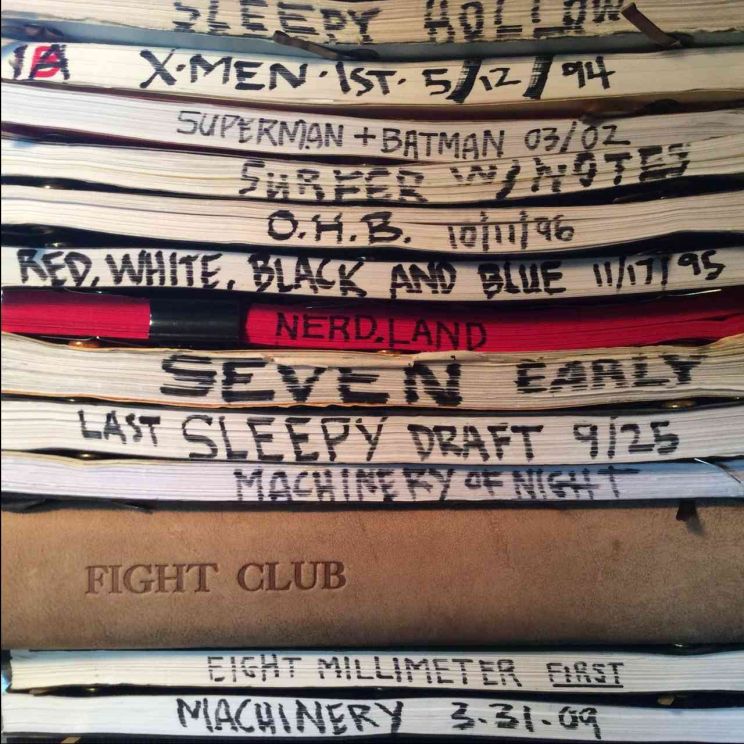 SLEEPY HOLLOW
X·MEN·1ST· 5/12/94
SUPERMAN + BATMAN 03/02
SURFER W/NOTES
O.H.B. 10/11/96
RED, WHITE, BLACK AND BLUE 11/17/95
NERD.LAND
SEVEN EARLY
LAST SLEEPY DRAFT 9/25
MACHINERY OF NIGHT
FIGHT CLUB
EIGHT MILLIMETER FIRST
MACHINERY 3-31-09